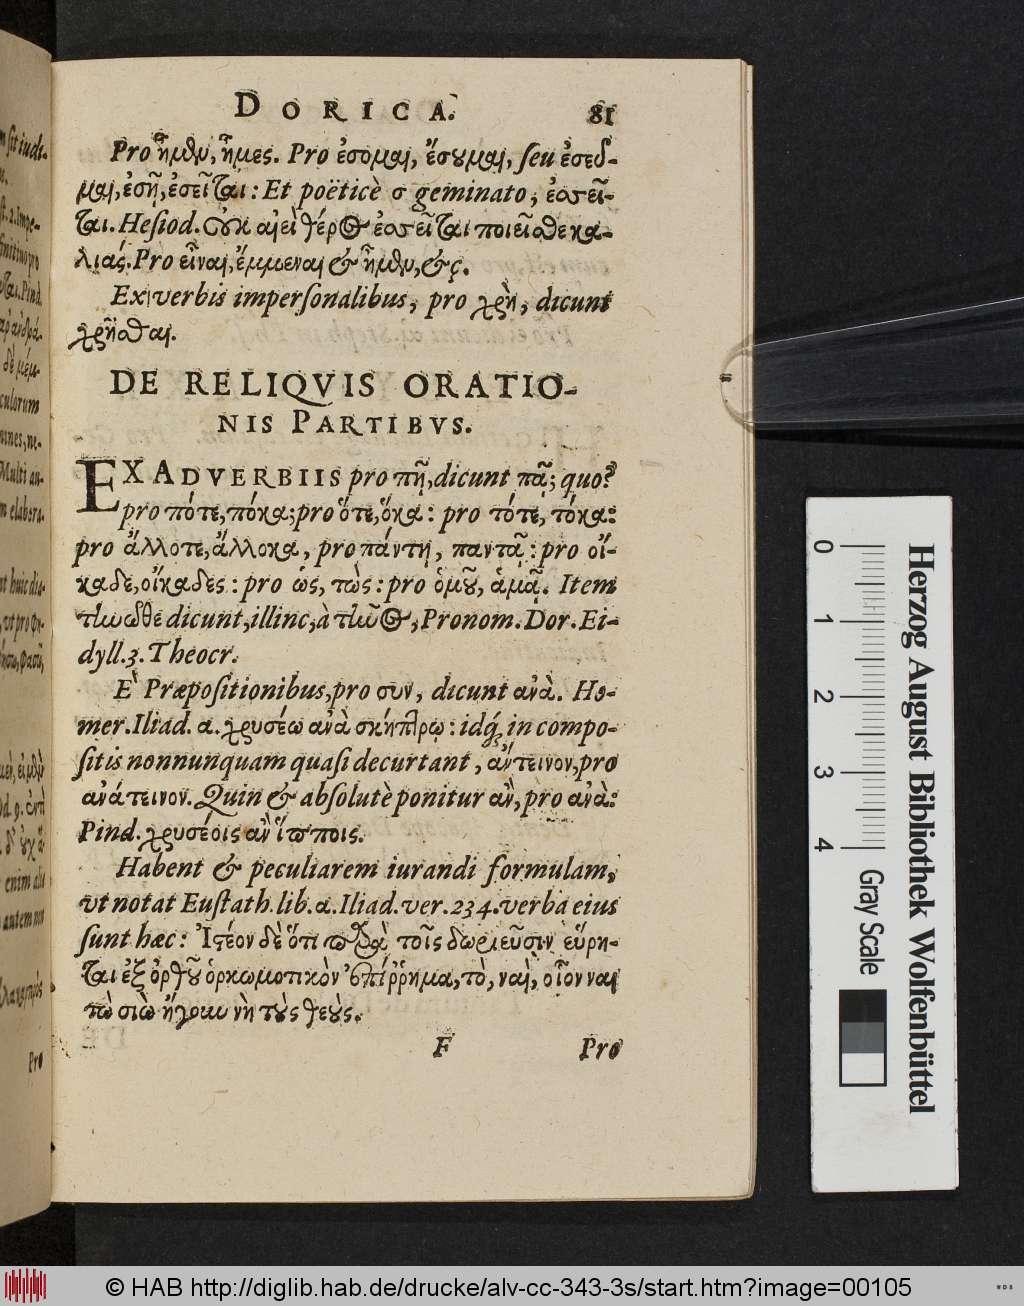 DORICA. 81
Pro ἦμθν, ἦμες. Pro ἔσομαι, ἔσουμαι, seu ἐσεῦ-
μαι, ἐσῇ, ἐσεῖται: Et poëticè σ geminato, ἐσσεῖ-
ται. Hesiod. Οὐκ αἰεὶ θέρος ἐσσεῖται ποιεῖσθε κα-
λιάς. Pro εἶναι, ἔμμεναι & ἦμθν, &c.
Ex verbis impersonalibus, pro χρὴ, dicunt
χρῆσθαι.
DE RELIQVIS ORATIO-
NIS PARTIBVS.
EX ADVERBIIS pro πῇ, dicunt πᾷ; quo?
pro πότε, πόκα; pro ὅτε, ὅκα: pro τότε, τόκα:
pro ἄλλοτε, ἄλλοκα, pro πάντη, παντᾷ: pro οἴ-
καδε, οἴκαδες: pro ὡς, τὼς: pro ὁμοῦ, ἁμᾷ. Item
τηνωθε dicunt, illinc, à τῆνος, Pronom. Dor. Ei-
dyll. 3. Theocr.
E Præpositionibus, pro συν, dicunt ἀνὰ. Ho-
mer. Iliad. α. χρυσέῳ ἀνὰ σκήπτρῳ: idq́; in compo-
sitis nonnunquam quasi decurtant, ἄντεινον, pro
ἀνάτεινον. Quin & absolutè ponitur ἂν, pro ἀνὰ:
Pind. χρυσέοις ἂν ἵπποις.
Habent & peculiarem iurandi formulam,
vt notat Eustath. lib. α. Iliad. ver. 234. verba eius
sunt hæc: Ἰστέον δὲ ὅτι παρὰ τοῖς δωριεῦσιν εὕρη-
ται ἐξ ὀρθοῦ ὁρκωμοτικὸν ἐπίῤῥημα, τὸ, ναὶ, οἷον ναὶ
τὼ σιὼ ἤγουν νὴ τοὺς θεούς.
F Pro
Pro
Herzog August Bibliothek Wolfenbüttel
0 1 2 3 4 Gray Scale
© HAB http://diglib.hab.de/drucke/alv-cc-343-3s/start.htm?image=00105